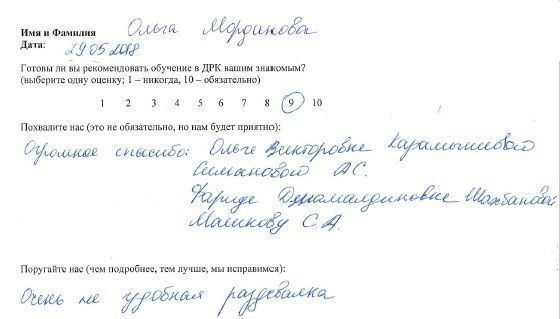 Имя и Фамилия Ольга Морданова
Дата: 29.05.2018
Готовы ли вы рекомендовать обучение в ДРК вашим знакомым?
(выберите одну оценку; 1 – никогда, 10 – обязательно)
1 2 3 4 5 6 7 8 9 10
Похвалите нас (это не обязательно, но нам будет приятно):
Огромное спасибо: Ольге Викторовне Карамышевой
Симановой А С.
Фариде Джамалдиновне Шахбановой
Машкову С.А.
Поругайте нас (чем подробнее, тем лучше, мы исправимся):
Очень не удобная раздевалка